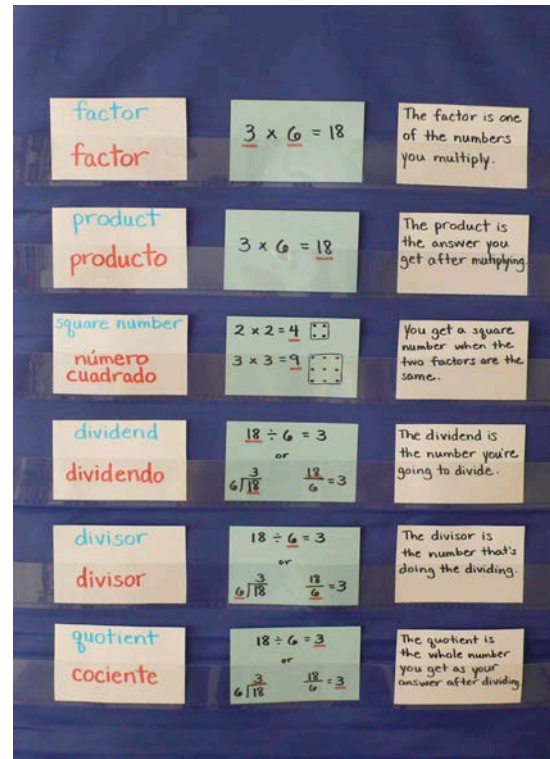 factor
factor
3 × 6 = 18
The factor is one
of the numbers
you multiply.
product
producto
3 × 6 = 18
The product is
the answer you
get after mutiplying.
square number
número
cuadrado
2 × 2 = 4
3 × 3 = 9
You get a square
number when the
two factors are the
same.
dividend
dividendo
18 ÷ 6 = 3
or
3
6⟌18
18/6 = 3
The dividend is
the number you're
going to divide.
divisor
divisor
18 ÷ 6 = 3
or
3
6⟌18
18/6 = 3
The divisor is
the number that's
doing the dividing.
quotient
cociente
18 ÷ 6 = 3
or
3
6⟌18
18/6 = 3
The quotient is
the whole number
you get as your
answer after dividing